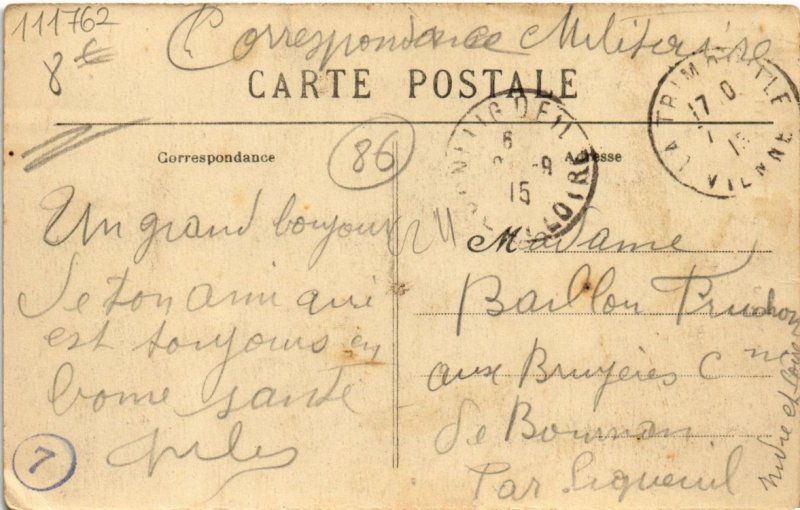 111762
8
Correspondance Militaire
CARTE POSTALE
LA TRIMOUILLE
17 0
15
VIENNE
86
6
-9
15
LOIRE
Correspondance
Adresse
Un grand bonjour
De ton ami qui
est toujours en
bonne santé
Jules
7
Madame
Baillou Pruchon
aux Bruyères Cne
de Bournan
Par Ligueuil
Indre et Loire